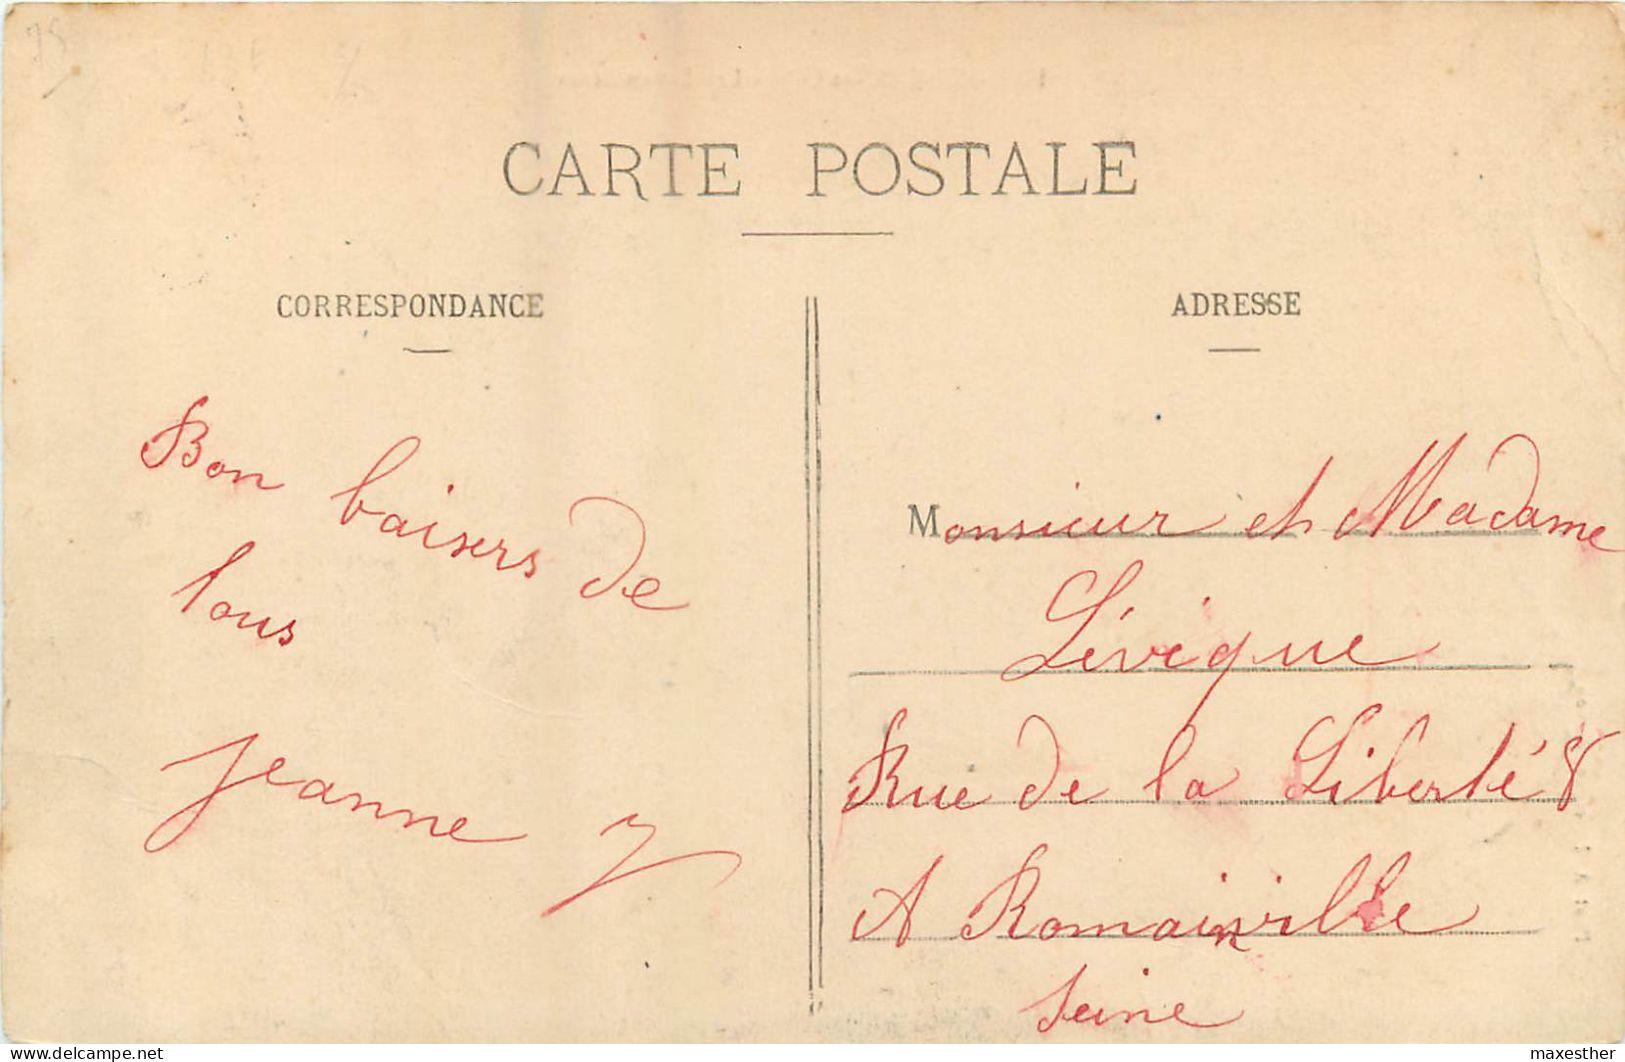 78
CARTE POSTALE
CORRESPONDANCE
Bon baisers de
tous
Jeanne
ADRESSE
Monsieur et Madame
Lévéque
Rue de la Liberté 8
A Romainville
Seine
delcampe.net
maxesther